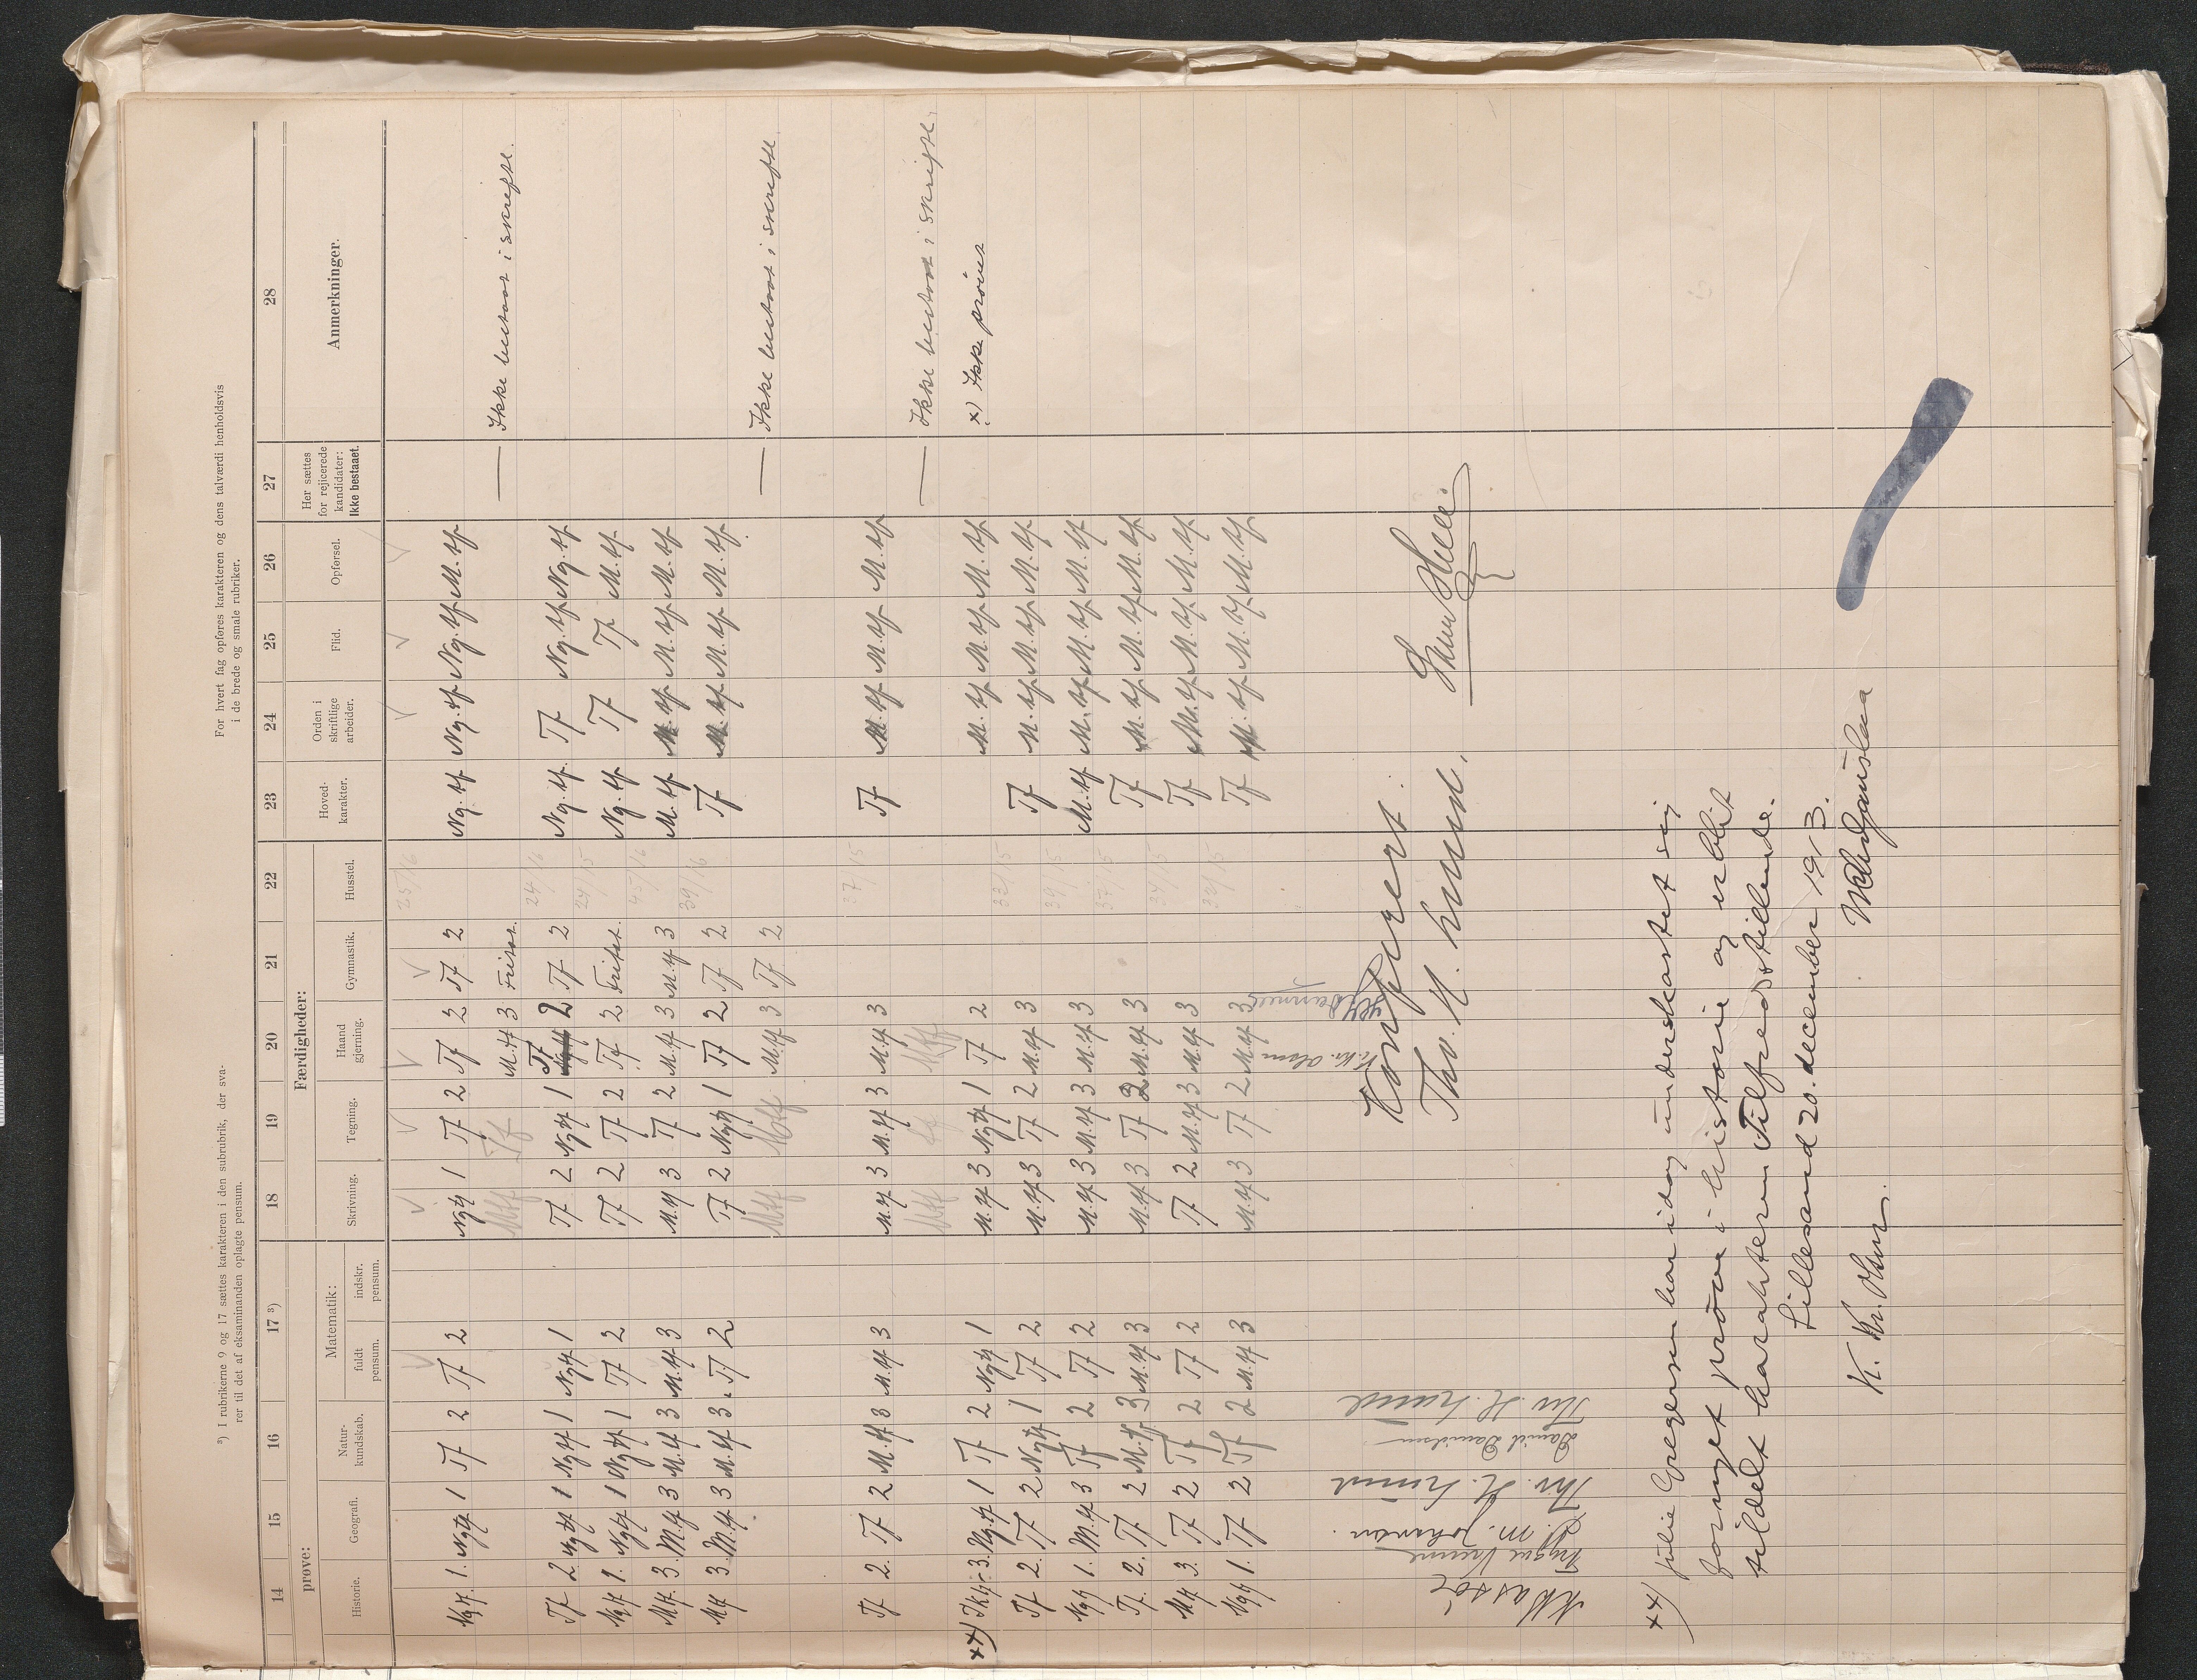 ³) I rubrikerne 9 og 17 sættes karakteren i den subrubrik, der sva-
rer til det af eksaminanden oplagte pensum.
For hvert fag opføres karakteren og dens talværdi henholdsvis
i de brede og smale rubriker.
14 15 16 17 ³) 18 19 20 21 22 23 24 25 26 27 28
prøve: Færdigheder:
Historie. Geografi. Natur-kundskab. Matematik: fuldt pensum. indskr. pensum. Skrivning. Tegning. Haand gjerning. Gymnastik. Husstel. Hoved-karakter. Orden i skriftlige arbeider. Flid. Opførsel. Her sættes for rejicerede kandidater: Ikke bestaaet. Anmerkninger.
25/16
Ng.tf. 1. Ng.tf 1 Tf 2 Tf 2 Ng.tf 1 Tf 2 Tf 2 Tf 2 Ng.tf Ng.tf Ng.tf M.tf
M.tf Tf M.tf 3 Fritat. — Ikke bestaat i skriftl.
Tf 2. Ng.tf 1 Ng.tf 1 Ng.tf 1 Tf 2 Ng.tf 1 Tf 2 Tf 2 24/16 Ng.tf. Tf Ng.tf Ng.tf
Ng.tf 1. Ng.tf 1 Ng.tf 1 Tf 2 Tf 2 Tf 2 Tf 2 Fritat. 24/15 Ng.tf Tf Tf M.tf.
M.tf. 3. M.tf 3 M.tf 3 M.tf 3 M.tf 3 Tf 2 M.tf 3 M.tf 3 45/16 M.tf M.tf M.tf M.tf
M.tf 3. M.tf 3 M.tf 3. Tf 2 Tf 2 Ng.tf 1 Tf 2 Tf 2 39/16 Tf M.tf M.tf M.tf.
M.tf M.tf M.tf 3 Tf 2 — Ikke bestaat i skriftl.
Tf 2. Tf 2 M.tf 3 M.tf 3 M.tf 3 M.tf 3 M.tf 3 37/15 Tf M.tf M.tf M.tf
M.tf M.tf — Ikke bestaat i skriftl.
××) 3. Ng.tf 1 Tf 2 Ng.tf 1 M.tf 3 Ng.tf 1 Tf 2 M.tf M.tf M.tf ×) Ikke prøvet
Tf 2. Tf 2 Ng.tf 1 Tf 2 M.tf 3 Tf 2 M.tf 3 32/15 Tf M.tf M.tf M.tf
Ng.tf 1. M.tf 3 Tf 2 Tf 2 M.tf 3 M.tf 3 M.tf 3 39/15 M.tf M.tf M.tf M.tf
Tf. 2. Tf 2 M.tf 3 M.tf 3 M.tf 3 Tf 2 M.tf 3 37/15 Tf M.tf M.tf M.tf
M.tf 3. Tf 2 Tf 2 Tf 2 Tf 2 M.tf 3 M.tf 3 34/15 Tf M.tf M.tf M.tf
Ng.tf 1. Tf 2 Tf 2 M.tf 3 M.tf 3 Tf 2 M.tf 3 32/15 Tf M.tf M.tf M.tf
Johansen.
Thv. H.
David Davidsen
Thv. H.
K. Kr. Olsen
Konfereret.
Thv. H.
××) Julie Gregersen har idag underkastet sig
fornyet prøve i historie og er blit
tildelt karakteren Tilfredsstillende.
Lillesand 20. december 1913.
K. Kr. Olsen.